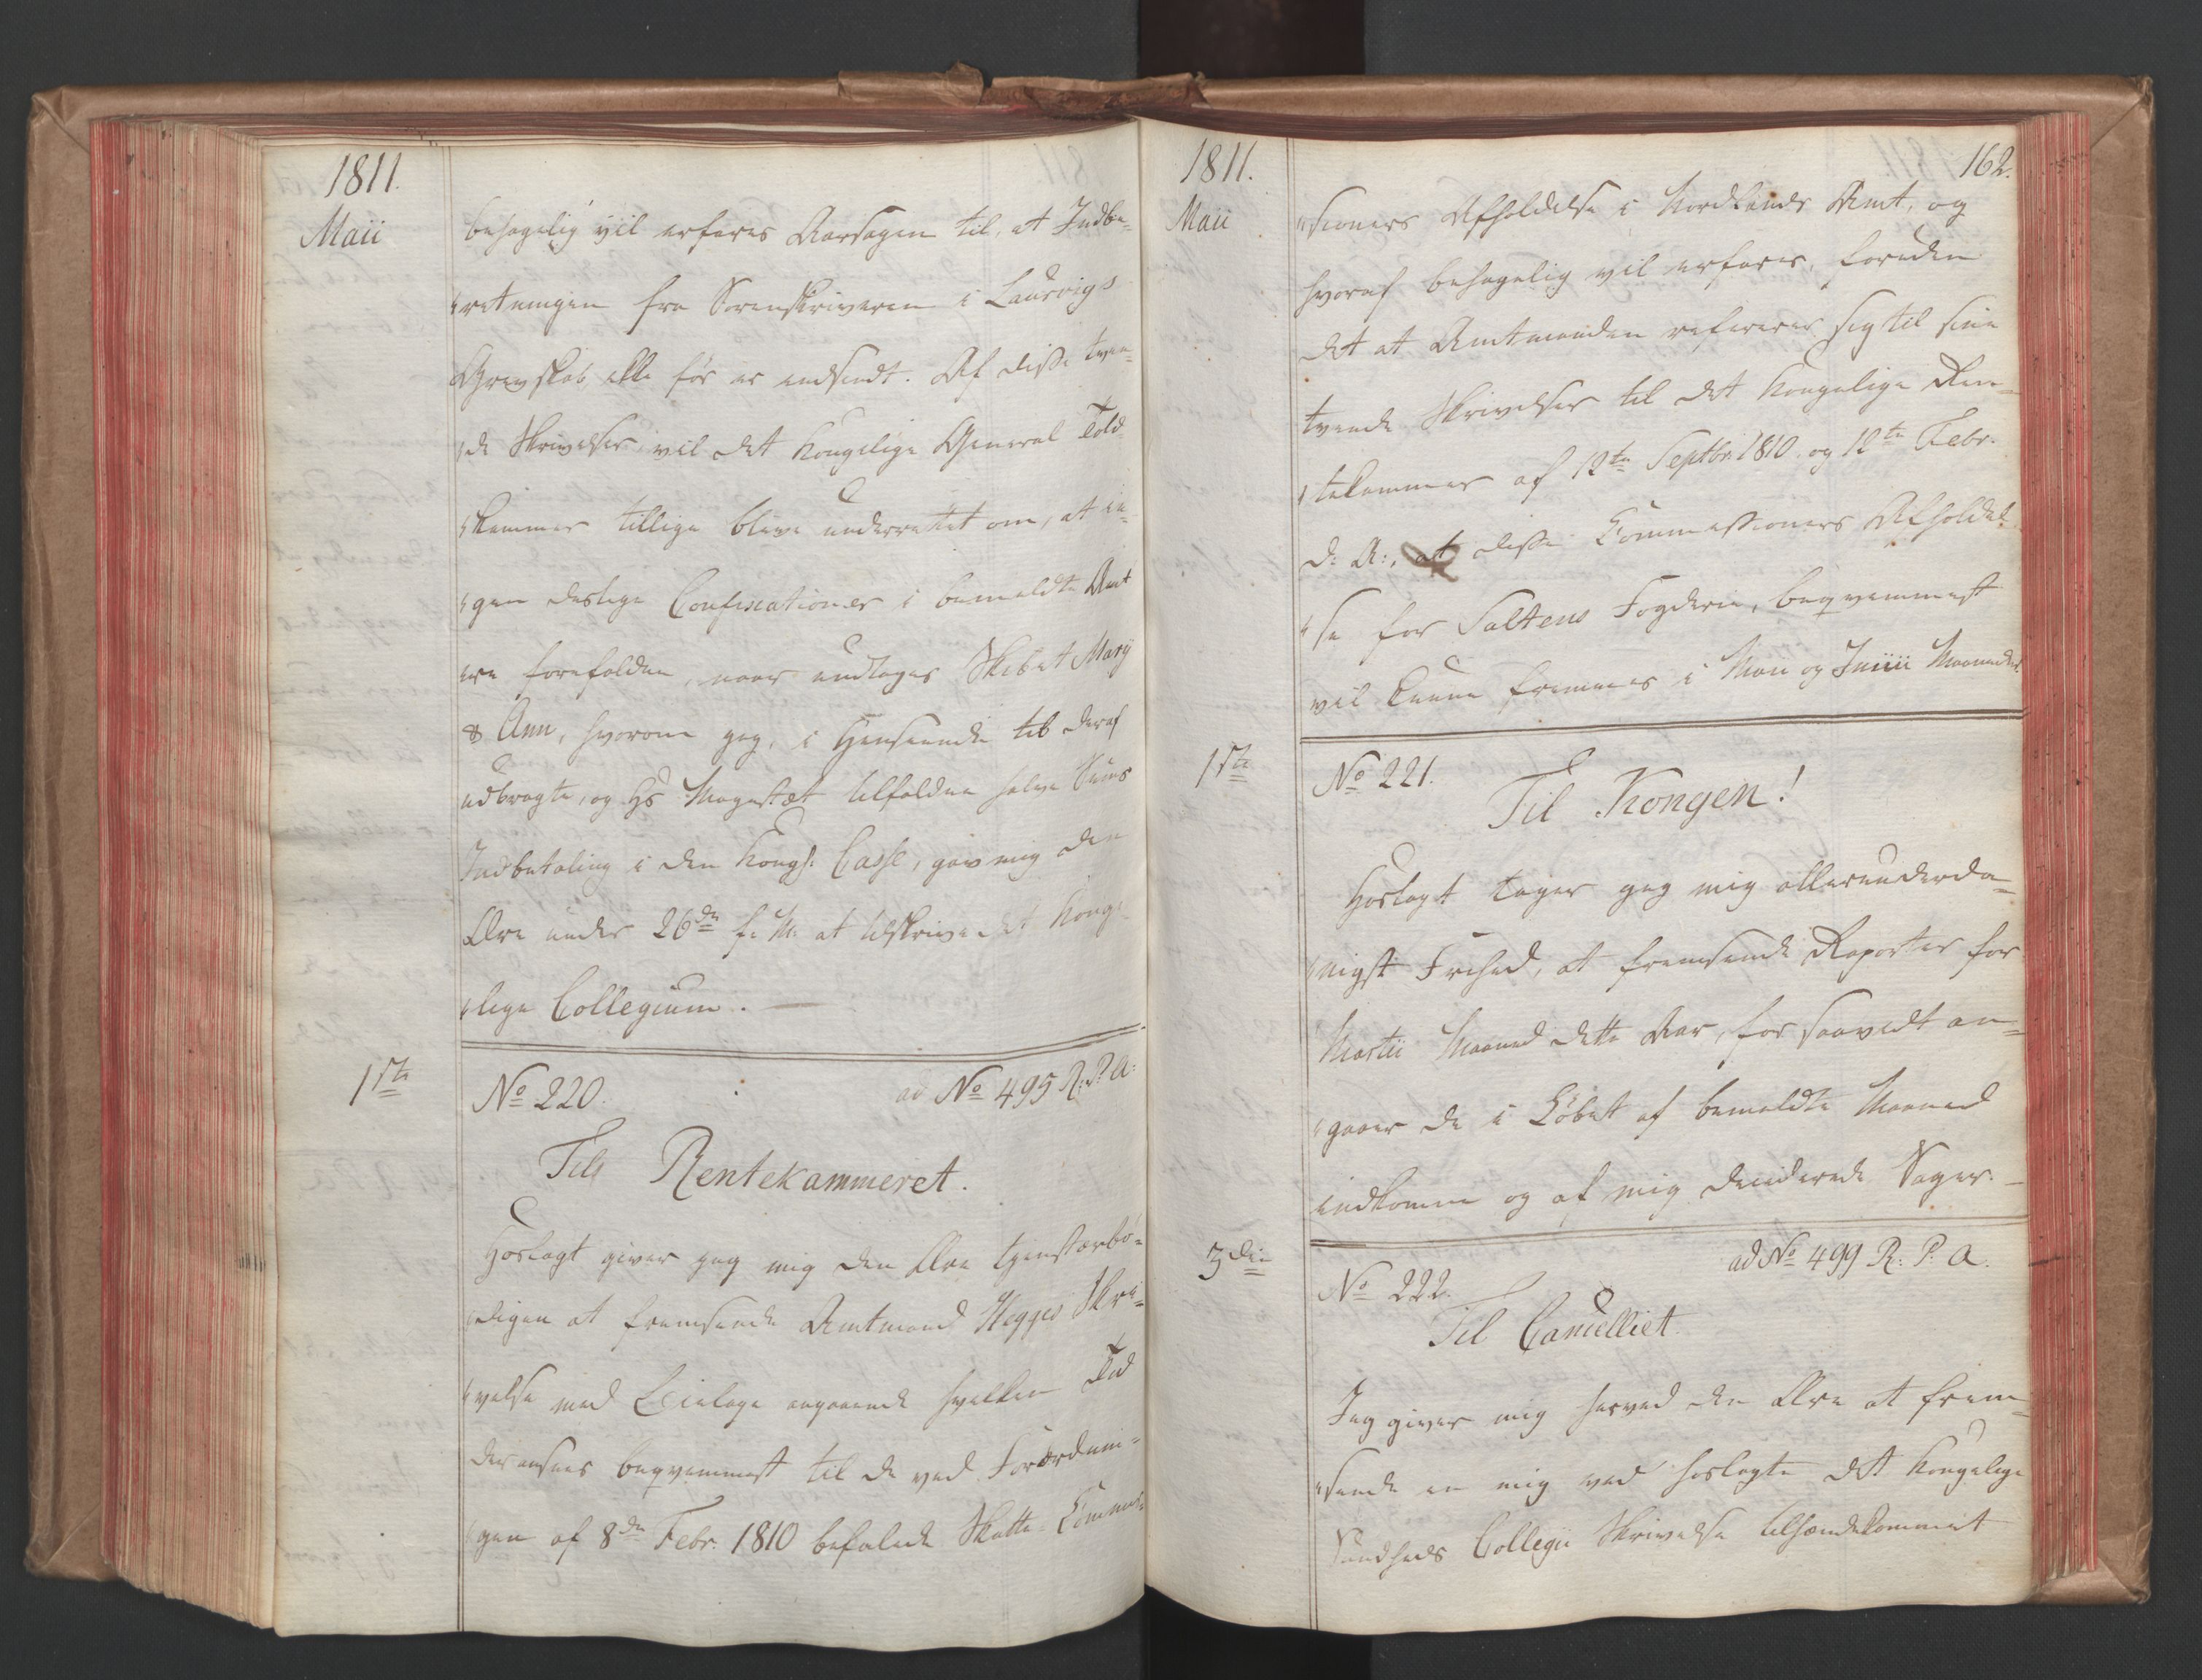 1811.
Maii
behagelig vil erfares Aarsagen til, at Indbe-
retningen fra Sorenskriveren i Laurvigs
Grevskab ikke før er indsendt. Af disse tven-
de Skrivelser vil det Kongelige General Told-
kammer tillige blive underrettet om, at in-
gen deslige Confiscationer i bemeldte Amt
ere forefalden, naar undtages Skibet Mary
& Ann, hvorom jeg, i Henseende til deraf
udbragte, og Hs Majestæt tilfaldne halve Sums
Indbetaling i den Kongl. Casse, gav mig den
Ære under 26de f. M. at tilskrive det Konge-
lige Collegium. —
1ste
No 220.
ad No 495 R: P: A:
Til Rentekammeret.
Hoslagt giver jeg mig den Ære tjenstærbø-
digen at fremsende Amtmand Hegges Skri-
velse med Bielage angaaende hvilken Tid
der ansees beqvemmest til de ved Forordnin-
gen af 8de Febr. 1810 befalede Skatte-Commis-
1811.
162.
Maii
sioners Afholdelse i Nordlands Amt, og
hvoraf behagelig vil erfares, foruden
det at Amtmanden refererer sig til sine
tvende Skrivelser til det Kongelige Ren-
tekammer af 12te Septbr. 1810. og 12te Febr.
d: A:, at disse Commissioners Afholdel-
se for Saltens Fogderie, beqvemmest
vil kunne fremmes i Maii og Junii Maaneder.
1ste
No 221.
Til Kongen!
Hoslagt tager jeg mig allerunderda-
nigst Frihed, at fremsende Raporter for
Martii Maaned dette Aar, for saavidt an-
gaaer de i Løbet af bemeldte Maaned
indkomne og af mig deciderede Sager. —
3die
No 222.
ad No 499 R: P: A.
Til Cancelliet
Jeg giver mig herved den Ære at frem-
sende en mig ved hoslagte det Kongelige
Sundheds Collegii Skrivelse tilhændekommet